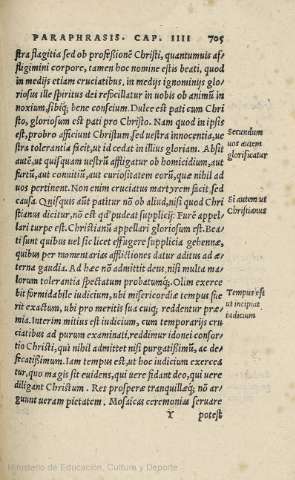 PARAPHRASIS. CAP. IIII 705
stra flagitia sed ob professionẽ Christi, quantumuis af-
fligimini corpore, tamen hoc nomine estis beati, quod
in medijs etiam cruciatibus, in medijs ignominijs glo
riosus ille spiritus dei refocillatur in uobis ob animũ in
noxium, sibiq; bene conscium. Dulce est pati cum Chri
sto, gloriosum est pati pro Christo. Nam quod in ipsis
est, probro afficiunt Christum sed uestra innocentia, ue
stra tolerantia facit, ut id cedat in illius gloriam. Absit
autẽ, ut quisquam uestrũ affligatur ob homicidium, aut
furtũ, aut conuitiũ, aut curiositatem eorũ, quæ nihil ad
uos pertinent. Non enim cruciatus martyrem facit, sed
causa. Quisquis aũt patitur nõ ob aliud, nisi quod Chri
stianus dicitur, nõ est qđ pudeat supplicij. Furẽ appel-
lari turpe est. Christianũ appellari gloriosum est. Bea-
ti sunt quibus uel sic licet effugere supplicia gehennæ,
quibus per momentarias afflictiones datur aditus ad æ-
terna gaudia. Ad hæc nõ admittit deus, nisi multa ma-
lorum tolerantia spectatum probatumq;. Olim exerce
bit formidabile iudicium, ubi misericordiæ tempus fue
rit exactum, ubi pro meritis sua cuiq; reddentur præ-
mia. Interim mitius est iudicium, cum temporarijs cru
ciatibus ad purum examinati, reddimur idonei consor-
tio Christi, qui nihil admittet nisi purgatissimũ, ac de-
fæcatissimum. Iam tempus est, ut hoc iudicium exercea
tur, quo magis sit euidens, qui uere fidant deo, qui uere
diligant Christum. Res prosperæ tranquillæq; nõ ar-
guunt ueram pietatem. Mosaicas ceremonias seruare
Y potest
Secundum
uos autem
glorificatur
Si autem ut
Christianus
Tempus est
ut incipiat
iudicium
Ministerio de Educación, Cultura y Deporte